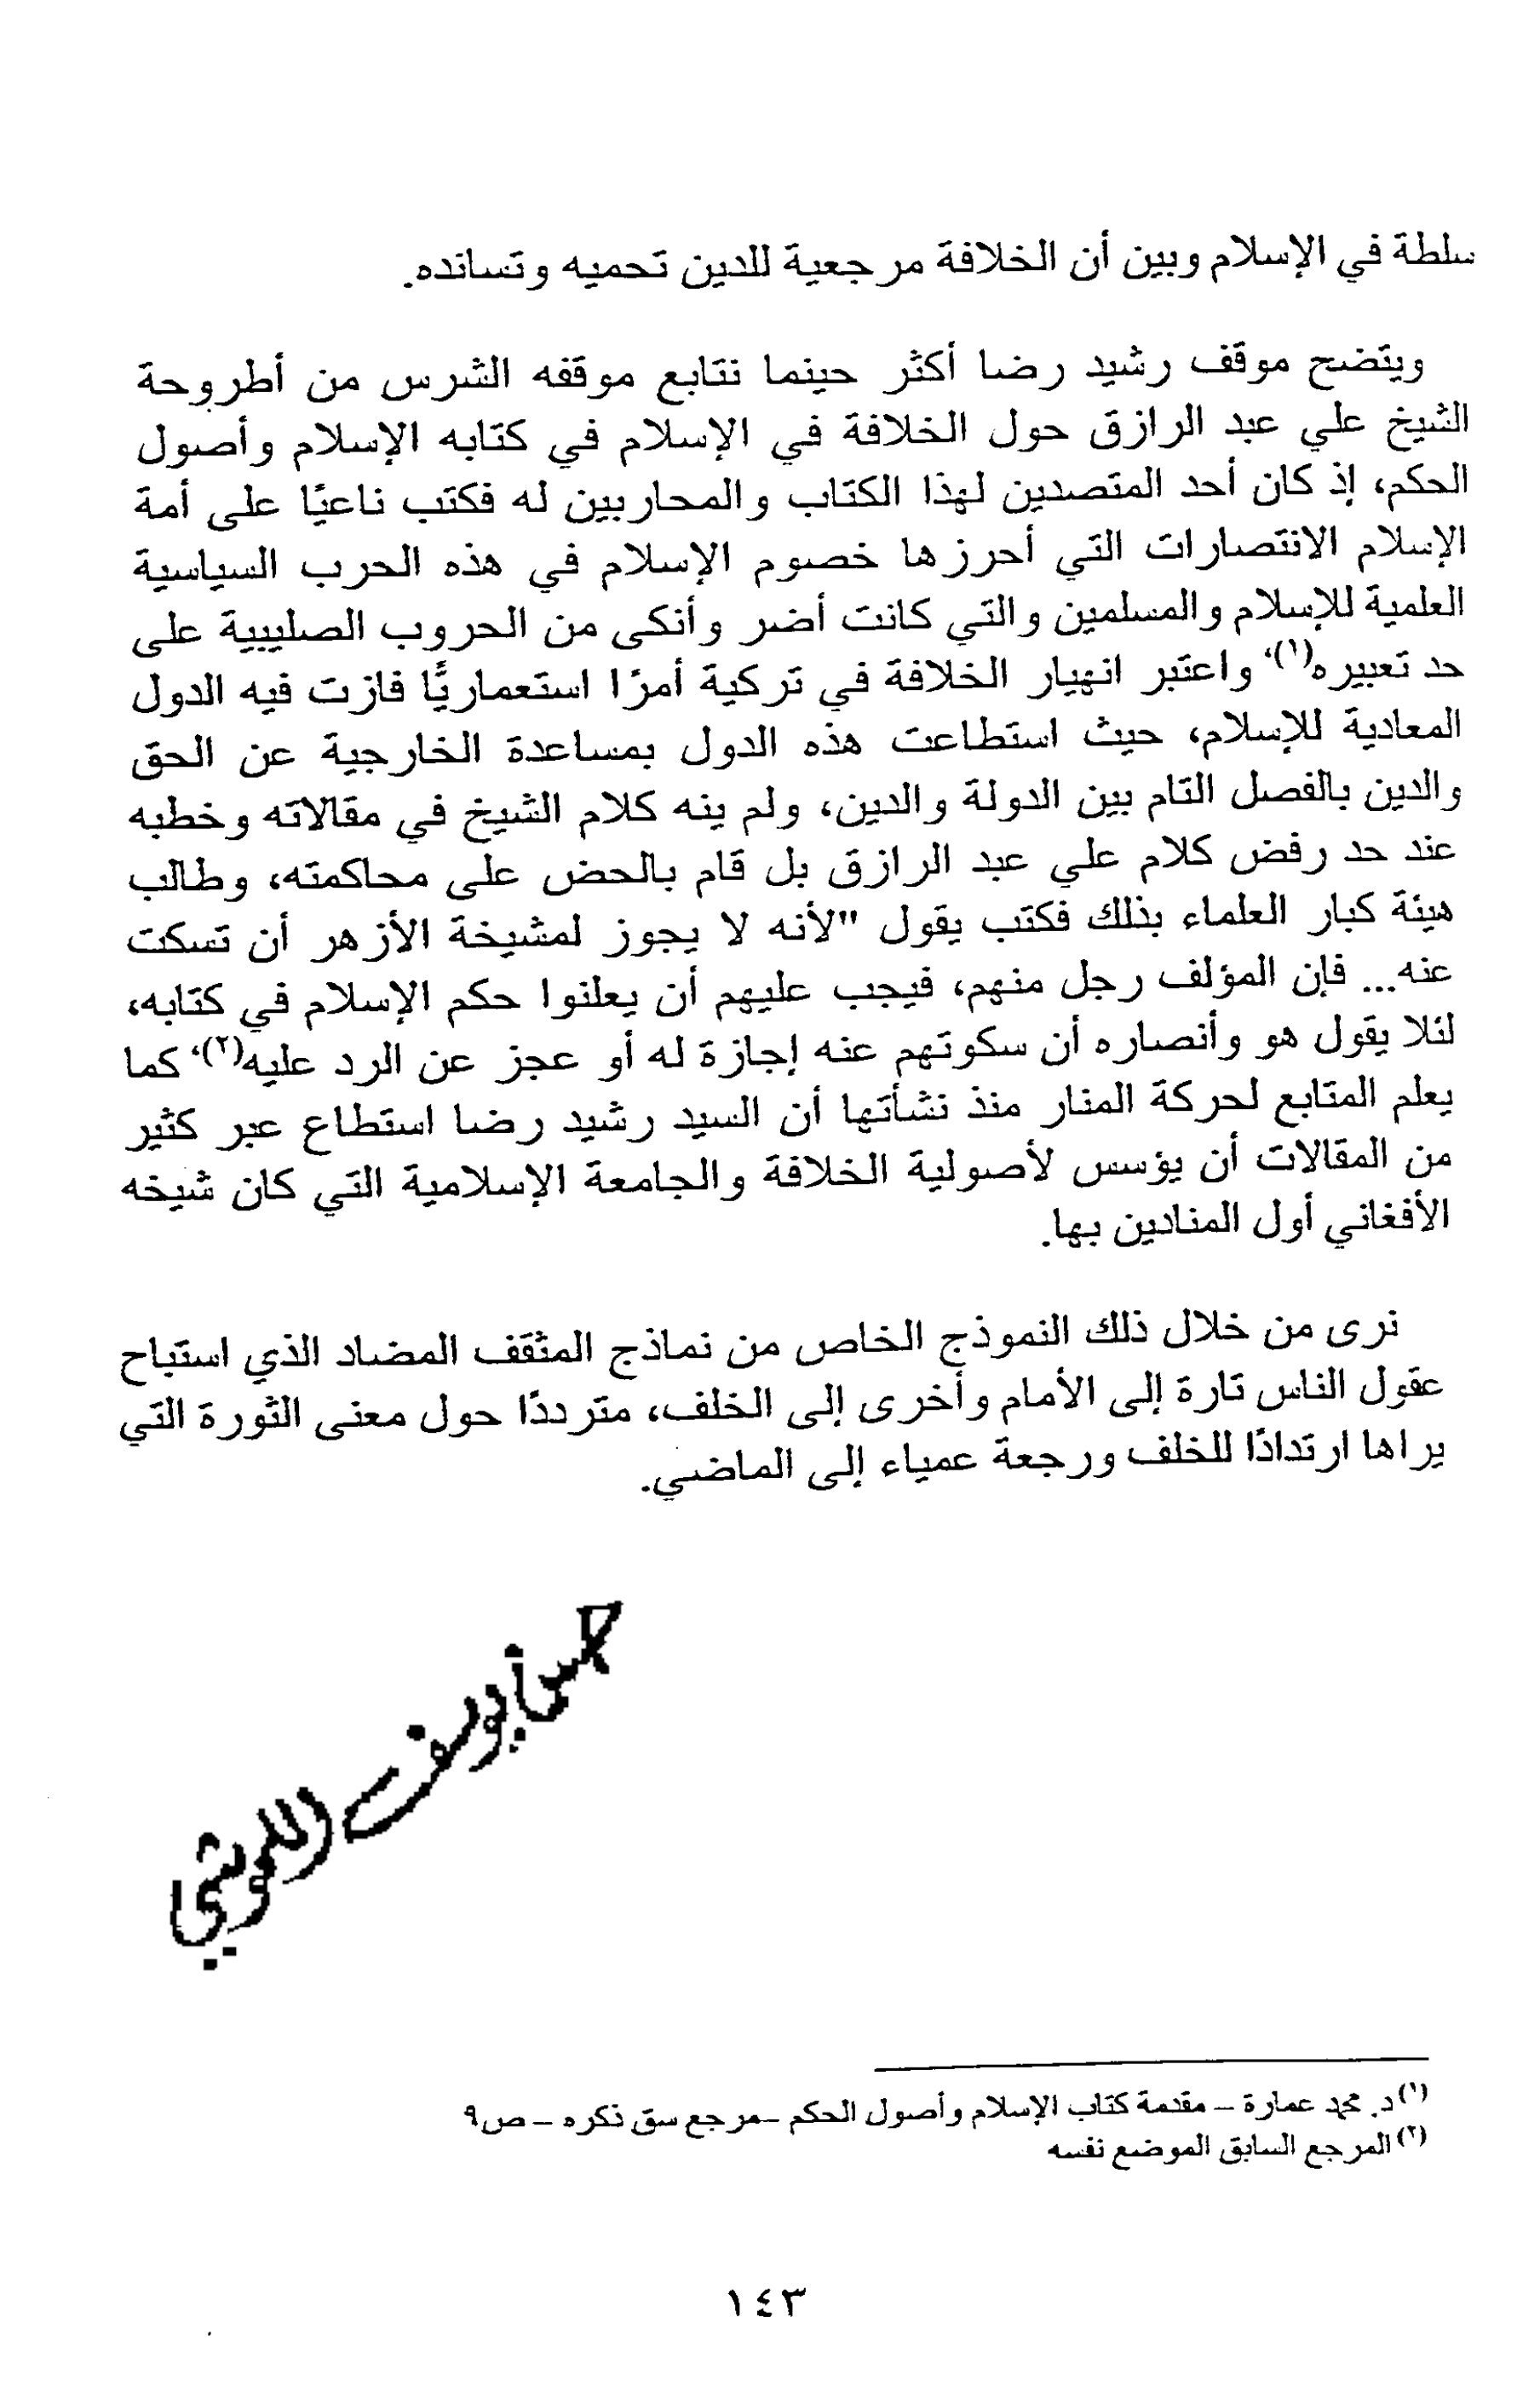 سلطة في الإسلام وبين أن الخلافة مرجعية للدين تحميه وتسانده.
ويتضح موقف رشيد رضا أكثر حينما نتابع موقفه الشرس من أطروحة
الشيخ علي عبد الرازق حول الخلافة في الإسلام في كتابه الإسلام وأصول
الحكم، إذ كان أحد المتصدين لهذا الكتاب والمحاربين له فكتب ناعيًا على أمة
الإسلام الانتصارات التي أحرزها خصوم الإسلام في هذه الحرب السياسية
العلمية للإسلام والمسلمين والتي كانت أضر وأنكى من الحروب الصليبية على
حد تعبيره(١)، واعتبر انهيار الخلافة في تركية أمرًا استعماريًا فازت فيه الدول
المعادية للإسلام، حيث استطاعت هذه الدول بمساعدة الخارجية عن الحق
والدين بالفصل التام بين الدولة والدين، ولم ينه كلام الشيخ في مقالاته وخطبه
عند حد رفض كلام علي عبد الرازق بل قام بالحض على محاكمته، وطالب
هيئة كبار العلماء بذلك فكتب يقول "لأنه لا يجوز لمشيخة الأزهر أن تسكت
عنه... فإن المؤلف رجل منهم، فيجب عليهم أن يعلنوا حكم الإسلام في كتابه،
لئلا يقول هو وأنصاره أن سكوتهم عنه إجازة له أو عجز عن الرد عليه(٢)، كما
يعلم المتابع لحركة المنار منذ نشأتها أن السيد رشيد رضا استطاع عبر كثير
من المقالات أن يؤسس لأصولية الخلافة والجامعة الإسلامية التي كان شيخه
الأفغاني أول المنادين بها.
نرى من خلال ذلك النموذج الخاص من نماذج المثقف المضاد الذي استباح
عقول الناس تارة إلى الأمام وأخرى إلى الخلف، مترددًا حول معنى الثورة التي
يراها ارتدادًا للخلف ورجعة عمياء إلى الماضي.
يوسف
(١) د. محمد عمارة – مقدمة كتاب الإسلام وأصول الحكم –مرجع سق ذكره – ص٩
(٢) المرجع السابق الموضع نفسه
١٤٣